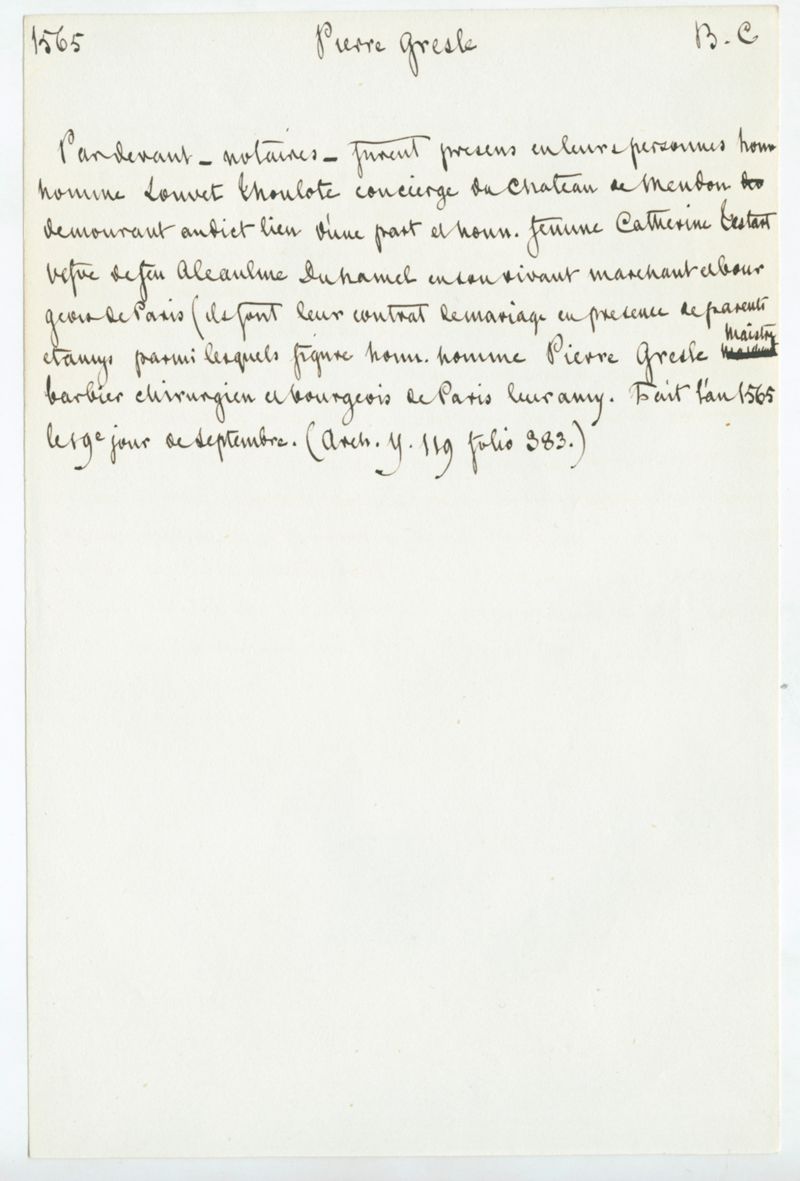 1565 Pierre Gresle B. C
Pardevant _ notaires _ furent presens en leurs personnes honn
homme Louvet Thoulote concierge du Chateau de Meudon
demourant audict lieu d'une part et honn. femme Catherine Testart
vefve de feu Aleaulme Duhamel en son vivant marchant et bour
geois de Paris (ils font leur contrat de mariage en presence de parents
et amys parmi lesquels figure honn. homme Pierre Gresle Maistre
barbier chirurgien et bourgeois de Paris leur amy. Fait l'an 1565
le 19e jour de septembre. (Arch. Y. 119 folio 383.)